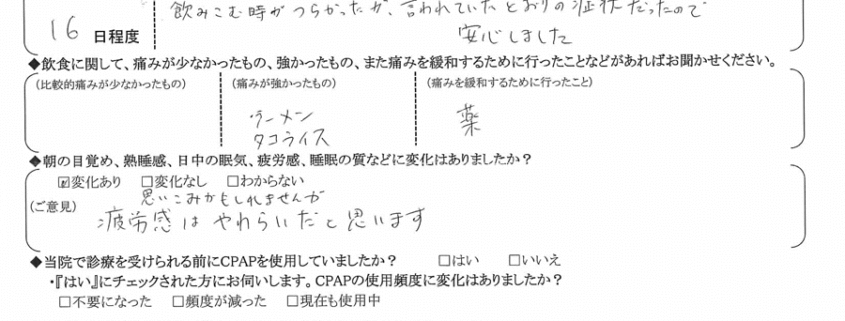 飲みこむ時がつらかったが、言われていたとおりの症状だったので
16 日程度
安心しました
◆飲食に関して、痛みが少なかったもの、強かったもの、また痛みを緩和するために行ったことなどがあればお聞かせください。
(比較的痛みが少なかったもの) (痛みが強かったもの) (痛みを緩和するために行ったこと)
ラーメン 薬
タコライス
◆朝の目覚め、熟睡感、日中の眠気、疲労感、睡眠の質などに変化はありましたか?
☑変化あり □変化なし □わからない
思いこみかもしれませんが
(ご意見) 疲労感はやわらいだと思います
◆当院で診療を受けられる前にCPAPを使用していましたか? □はい □いいえ
・『はい』にチェックされた方にお伺いします。CPAPの使用頻度に変化はありましたか?
□不要になった □頻度が減った □現在も使用中